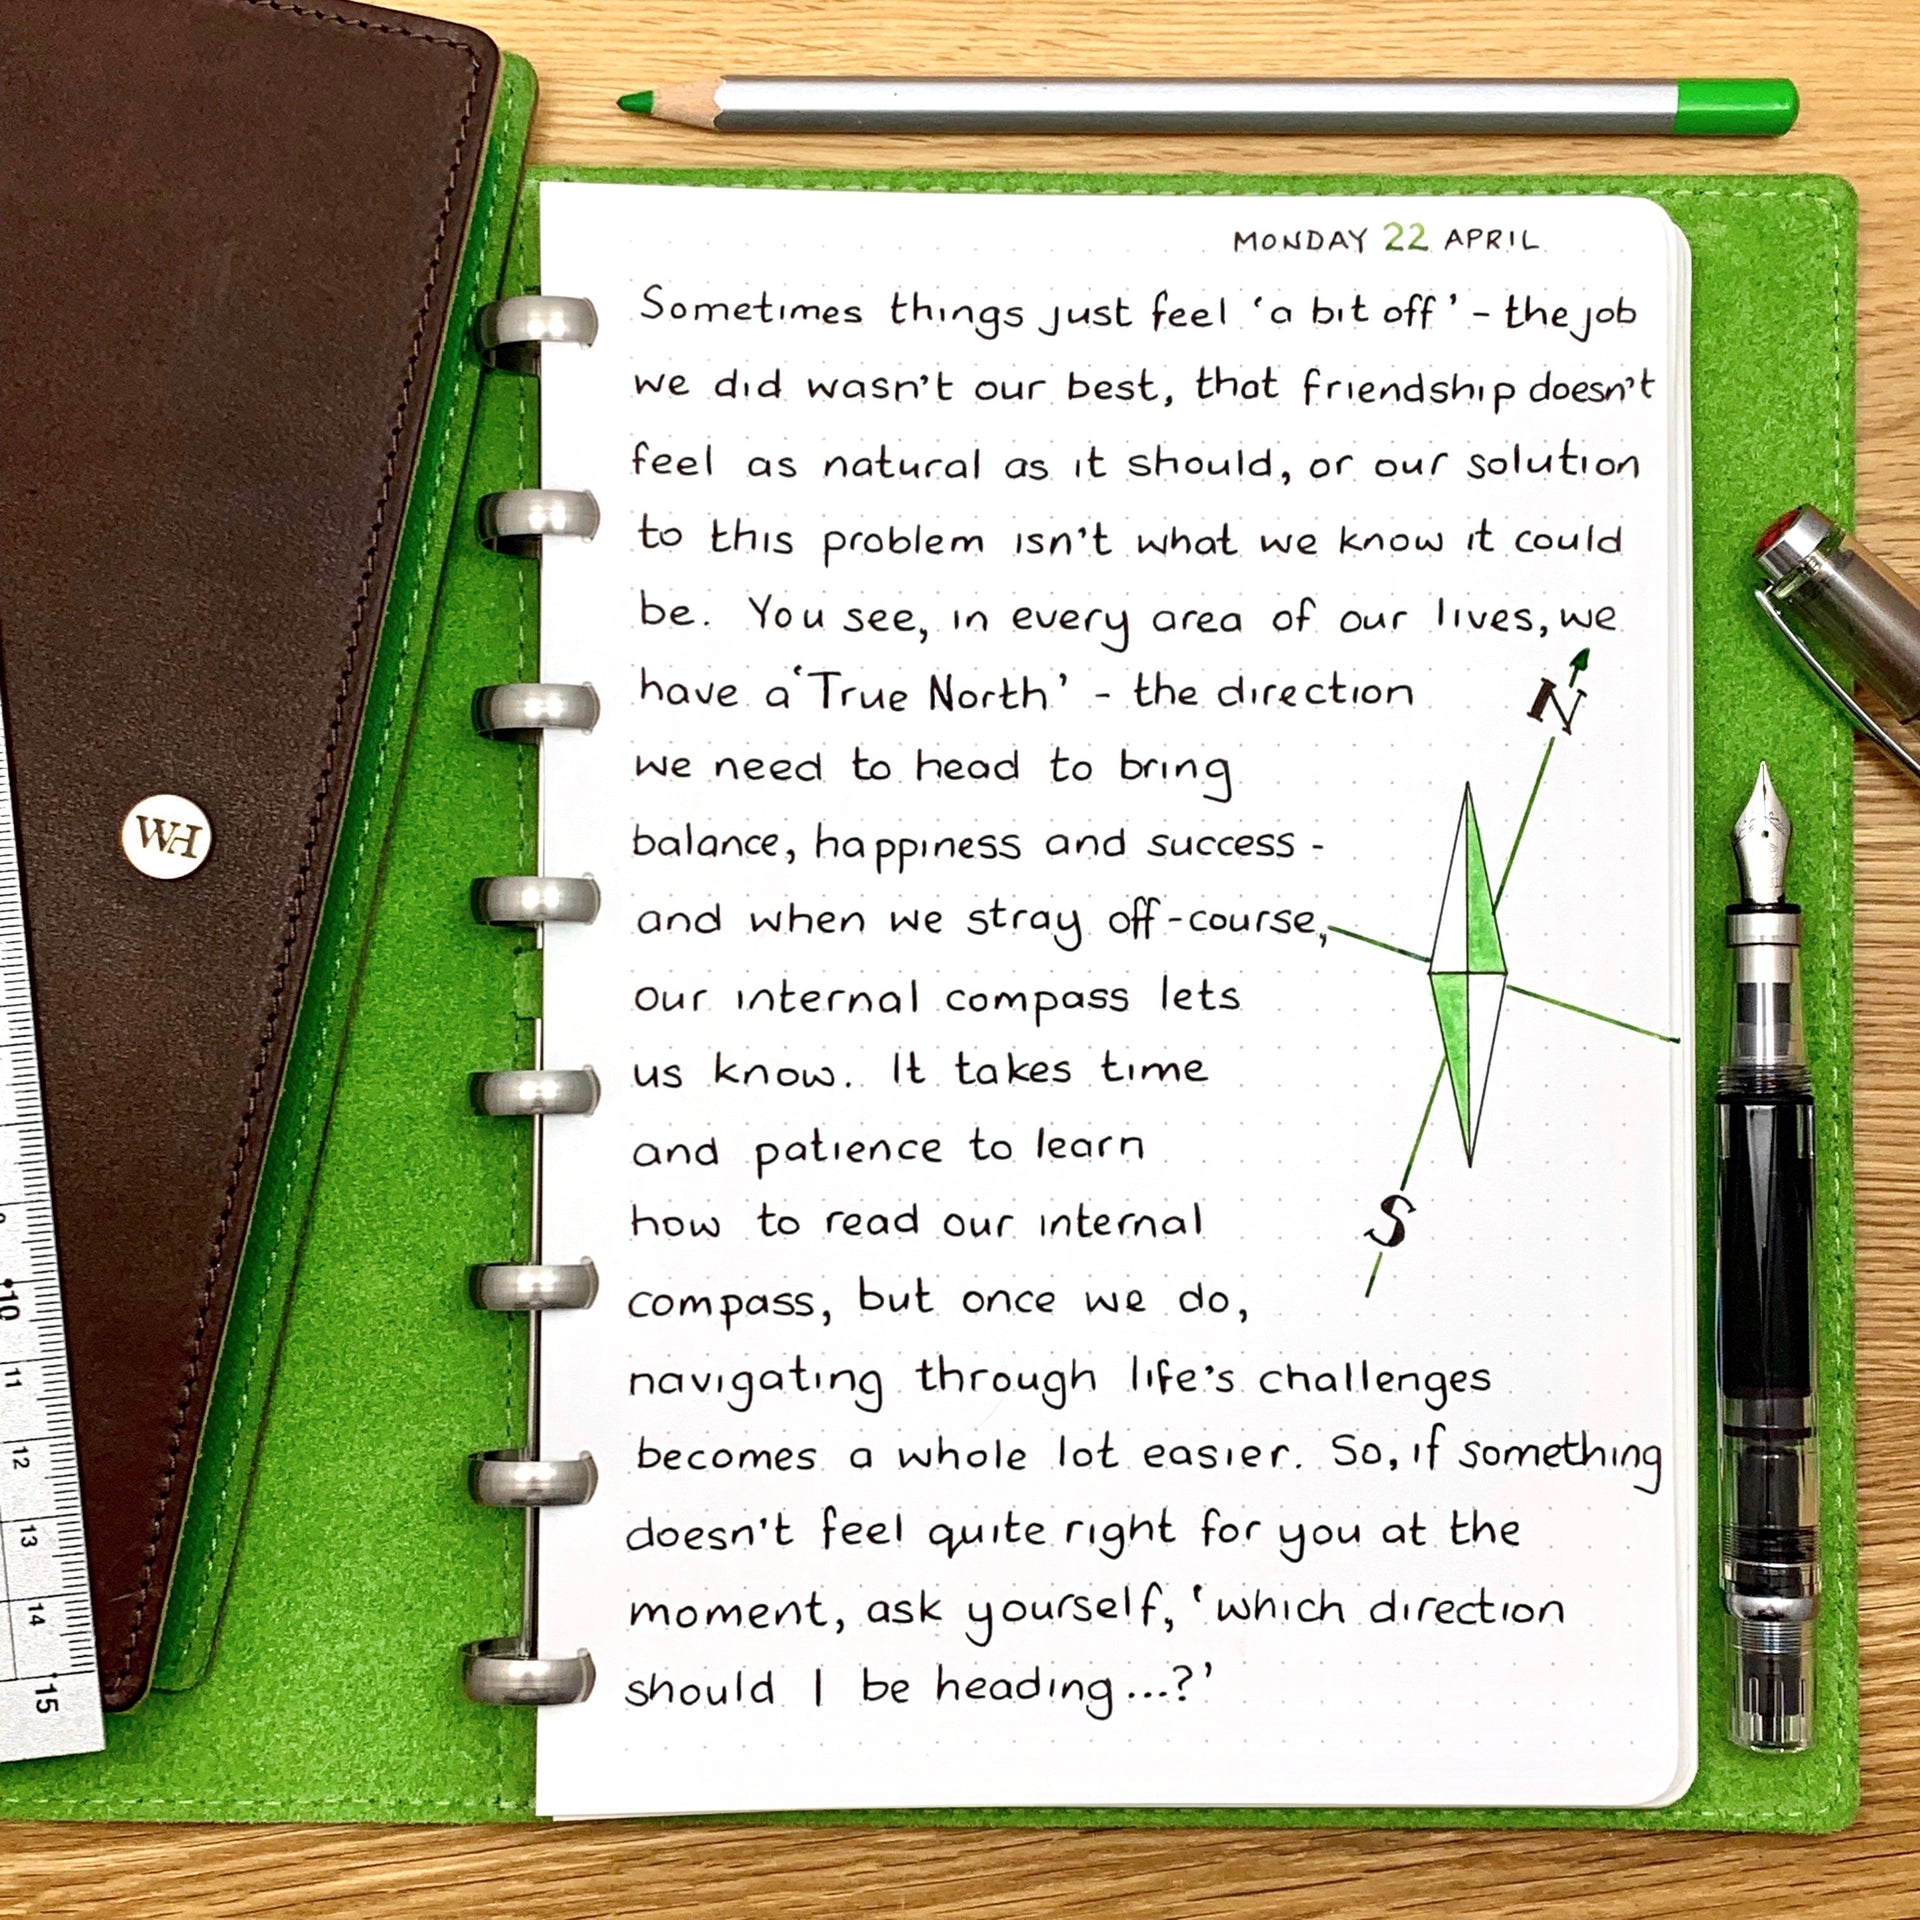 MONDAY 22 APRIL
Sometimes things just feel 'a bit off' - the job
we did wasn't our best, that friendship doesn't
feel as natural as it should, or our solution
to this problem isn't what we know it could
be. You see, in every area of our lives, we
have a 'True North' - the direction
we need to head to bring
balance, happiness and success -
and when we stray off-course,
our internal compass lets
us know. It takes time
and patience to learn
how to read our internal
compass, but once we do,
navigating through life's challenges
becomes a whole lot easier. So, if something
doesn't feel quite right for you at the
moment, ask yourself, 'which direction
should I be heading...?'
N
S
WH
10
11
12
13
14
15